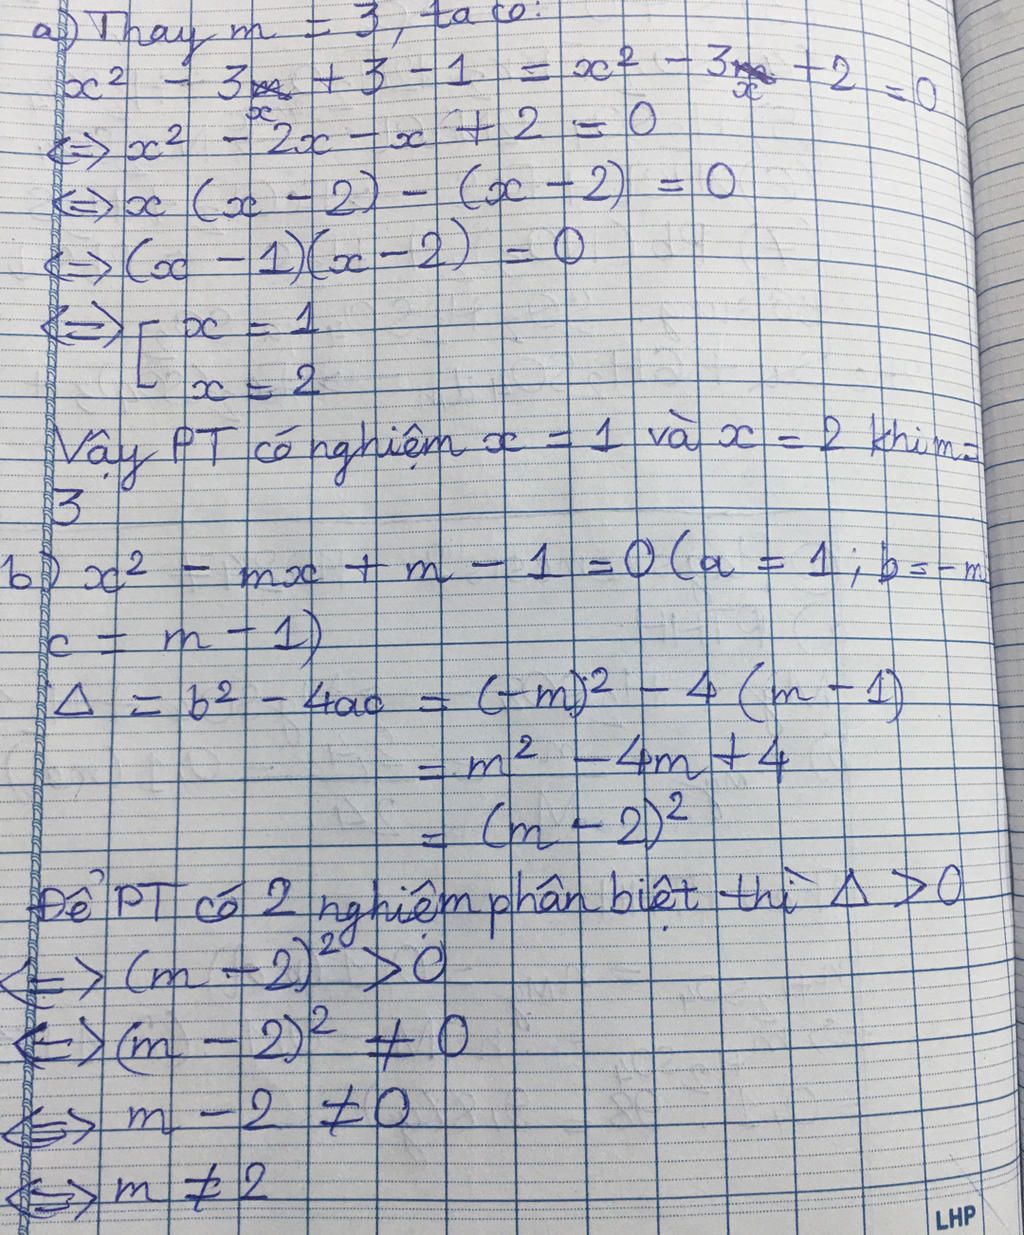 a) Thay m = 3, ta có:
x² - 3x + 3 - 1 = x² - 3x + 2 = 0
⇔ x² - 2x - x + 2 = 0
⇔ x (x - 2) - (x - 2) = 0
⇔ (x - 1)(x - 2) = 0
⇔ [ x = 1
x = 2
Vậy PT có nghiệm x = 1 và x = 2 khi m =
3
b) x² - mx + m - 1 = 0 (a = 1 ; b = -m
c = m - 1)
Δ = b² - 4ac = (-m)² - 4 (m - 1)
= m² - 4m + 4
= (m - 2)²
Để PT có 2 nghiệm phân biệt thì Δ > 0
⇔ (m - 2)² > 0
⇔ (m - 2)² ≠ 0
⇔ m - 2 ≠ 0
⇔ m ≠ 2
LHP